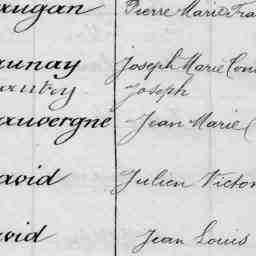 augan Pierre Marie Fra
aunay Joseph Marie Con
autry Joseph
auvergne Jean Marie (
avid Julien Victor
avid Jean Louis